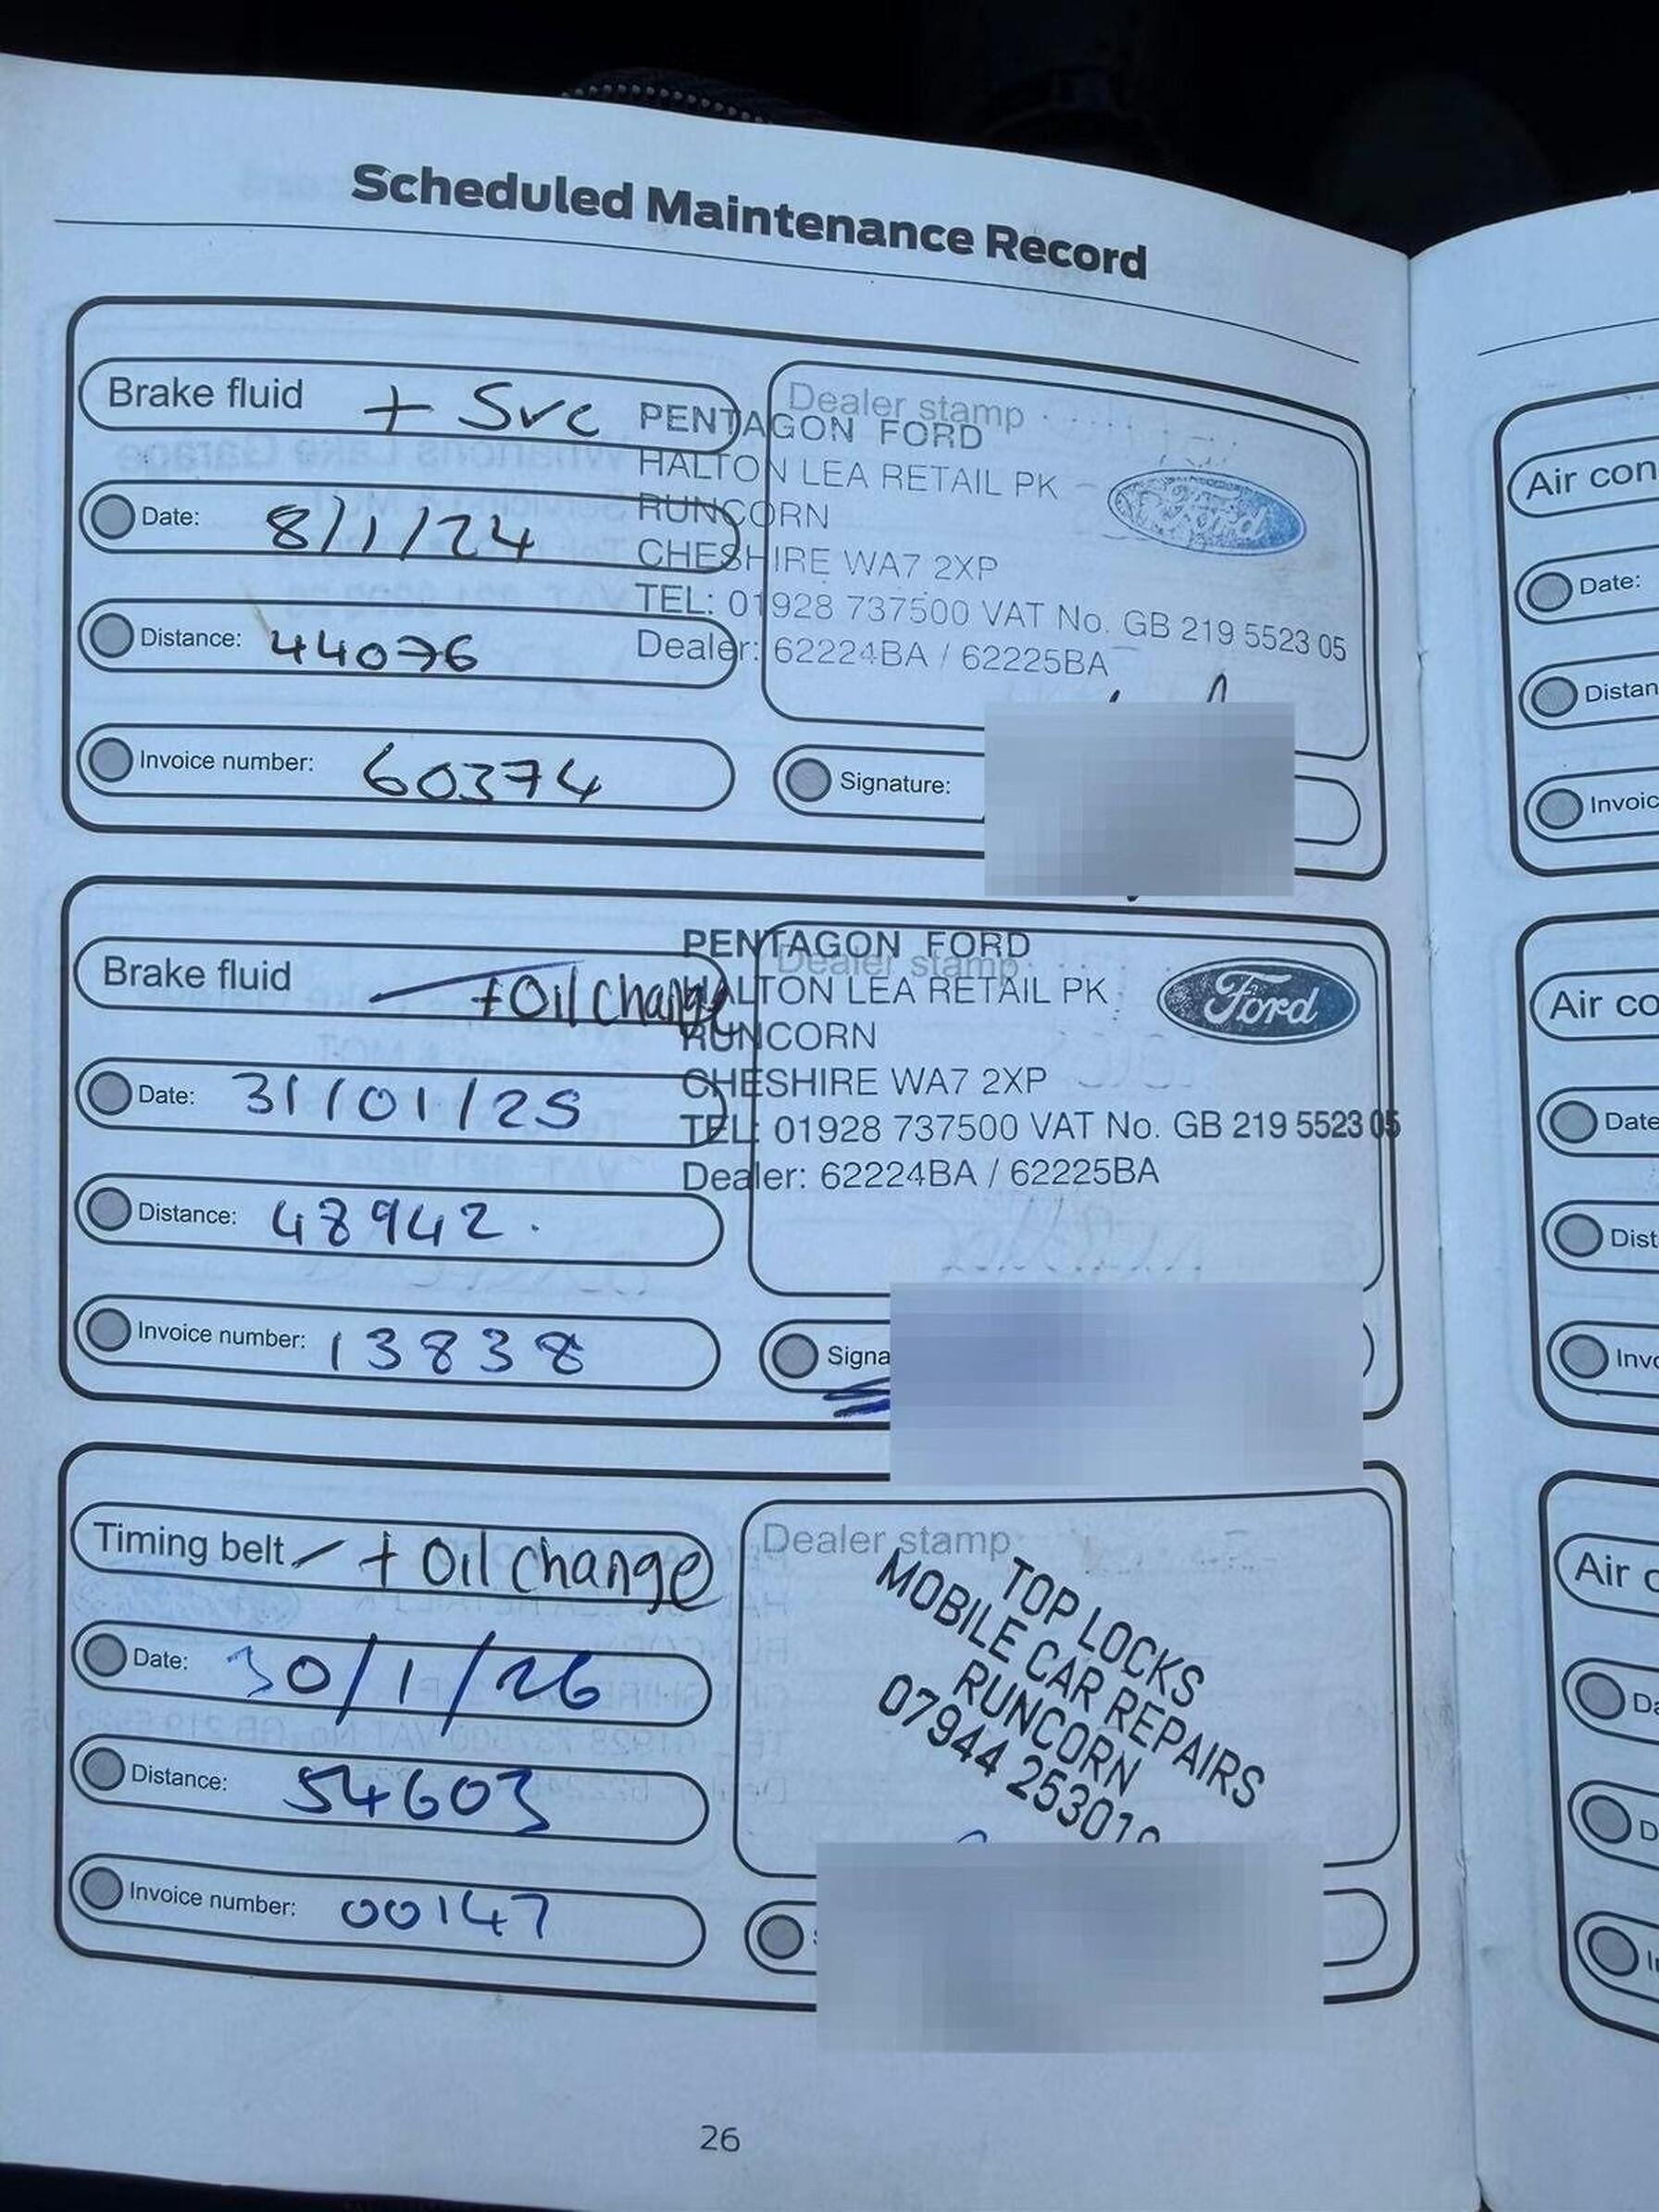 Scheduled Maintenance Record
Brake fluid + Svc
Dealer stamp
PENTAGON FORD
HALTON LEA RETAIL PK
RUNCORN
CHESHIRE WA7 2XP
TEL: 01928 737500 VAT No. GB 219 5523 05
Dealer: 62224BA / 62225BA
Ford
Date: 8/1/24
Distance: 44076
Invoice number: 60374
Signature:
Brake fluid + Oil change
Dealer stamp
PENTAGON FORD
HALTON LEA RETAIL PK
RUNCORN
CHESHIRE WA7 2XP
TEL: 01928 737500 VAT No. GB 219 5523 05
Dealer: 62224BA / 62225BA
Ford
Date: 31/01/25
Distance: 48942.
Invoice number: 13838
Signa
Timing belt + Oil change
Dealer stamp
TOP LOCKS
MOBILE CAR REPAIRS
RUNCORN
07944 25301
Date: 30/1/26
Distance: 54603
Invoice number: 00147
26
Air con
Date:
Distan
Invoic
Air co
Date
Dist
Invo
Air c
Da
D
In